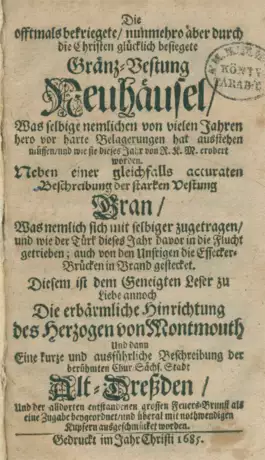 Die
offtmals bekriegete/ nunmehro aber durch
die Christen glücklich besiegete
Gränz-Vestung
Neuhäusel/
Was selbige nemlichen von vielen Jahren
hero vor harte Belagerungen hat ausstehen
müssen/ und wie sie dieses Jahr von R. K. M. erobert
worden.
Neben einer gleichfalls accuraten
Beschreibung der starken Vestung
Gran/
Was nemlich sich mit selbiger zugetragen/
und wie der Türk dieses Jahr davor in die Flucht
getrieben; auch von den Unsrigen die Essecker-
Brücken in Brand gestecket.
Diesem ist dem Geneigten Leser zu
Liebe annoch
Die erbärmliche Hinrichtung
des Herzogen von Montmouth
Und dann
Eine kurze und ausführliche Beschreibung der
berühmten Chur-Sächs. Stadt
Alt-Dreßden/
Und der alldorten entstandenen grossen Feuers-Brunst als
eine Zugabe beygeordnet/ und überal mit nothwendigen
Kupfern ausgeschmücket worden.
Gedruckt im Jahr Christi 1685.